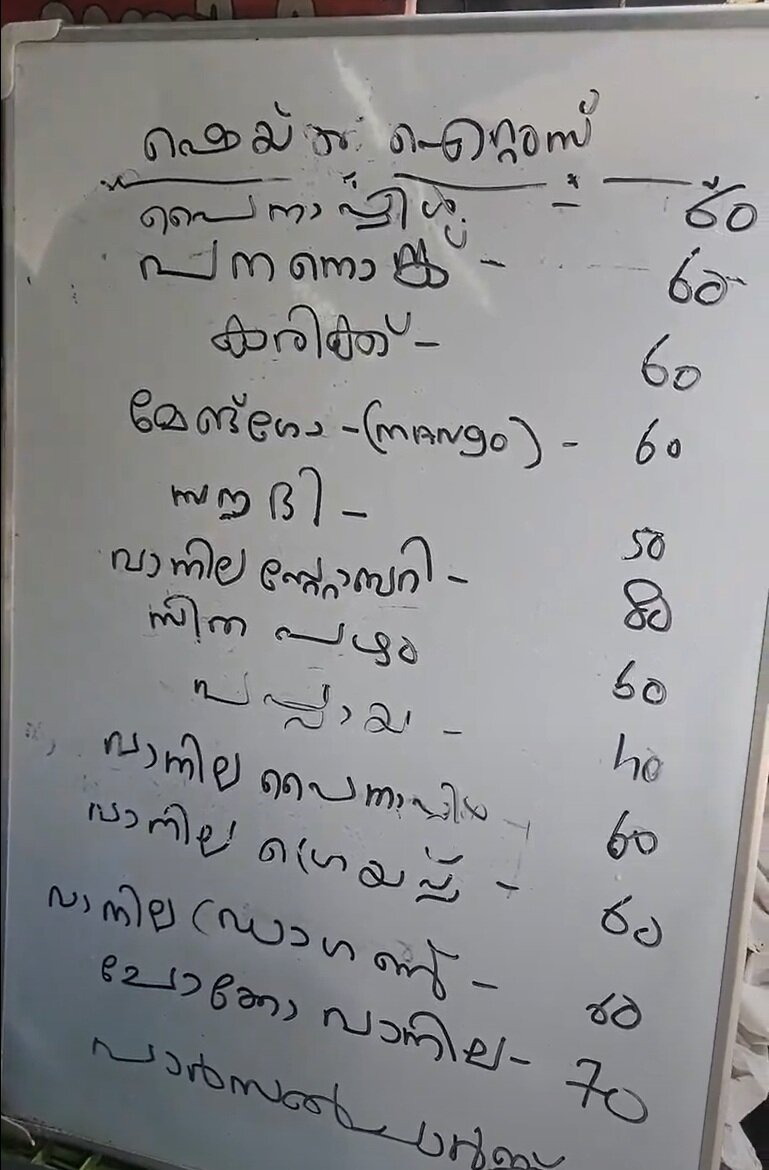 ഷെയ്ക്ക് ഐറ്റംസ്
പൈനാപ്പിൾ - 60
പനനൊങ്ക് - 60
കരിക്ക് - 60
മേങ്ഗോ - (MANgo) - 60
- 50
വാനില സ്ട്രോബറി - 80
സീത പഴം 60
പപ്പായ - 40
വാനില പൈനാപ്പിൾ - 60
വാനില ഗ്രേയപ്പ് - 60
വാനില ഡ്രാഗൺ - 80
ചോക്കോ വാനില - 70
പാർസൽ ചാർജ്